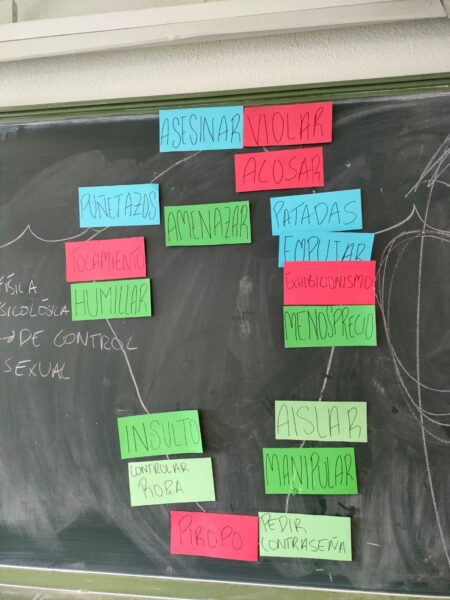 ASESINAR VIOLAR
ACOSAR
PUÑETAZOS
AMENAZAR
PATADAS
EMPUTAR
TOCAMIENTO
EXHIBICIONISMO
HUMILLAR
MENOSPRECIO
FÍSICA
PSICOLÓSICA
→ DE CONTROL
SEXUAL
INSULTO
AISLAR
CONTROLAR
ROPA
MANIPULAR
PIROPO
PEDIR
CONTRASEÑA